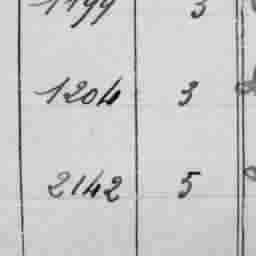 1199 3
1204 3
2142 5